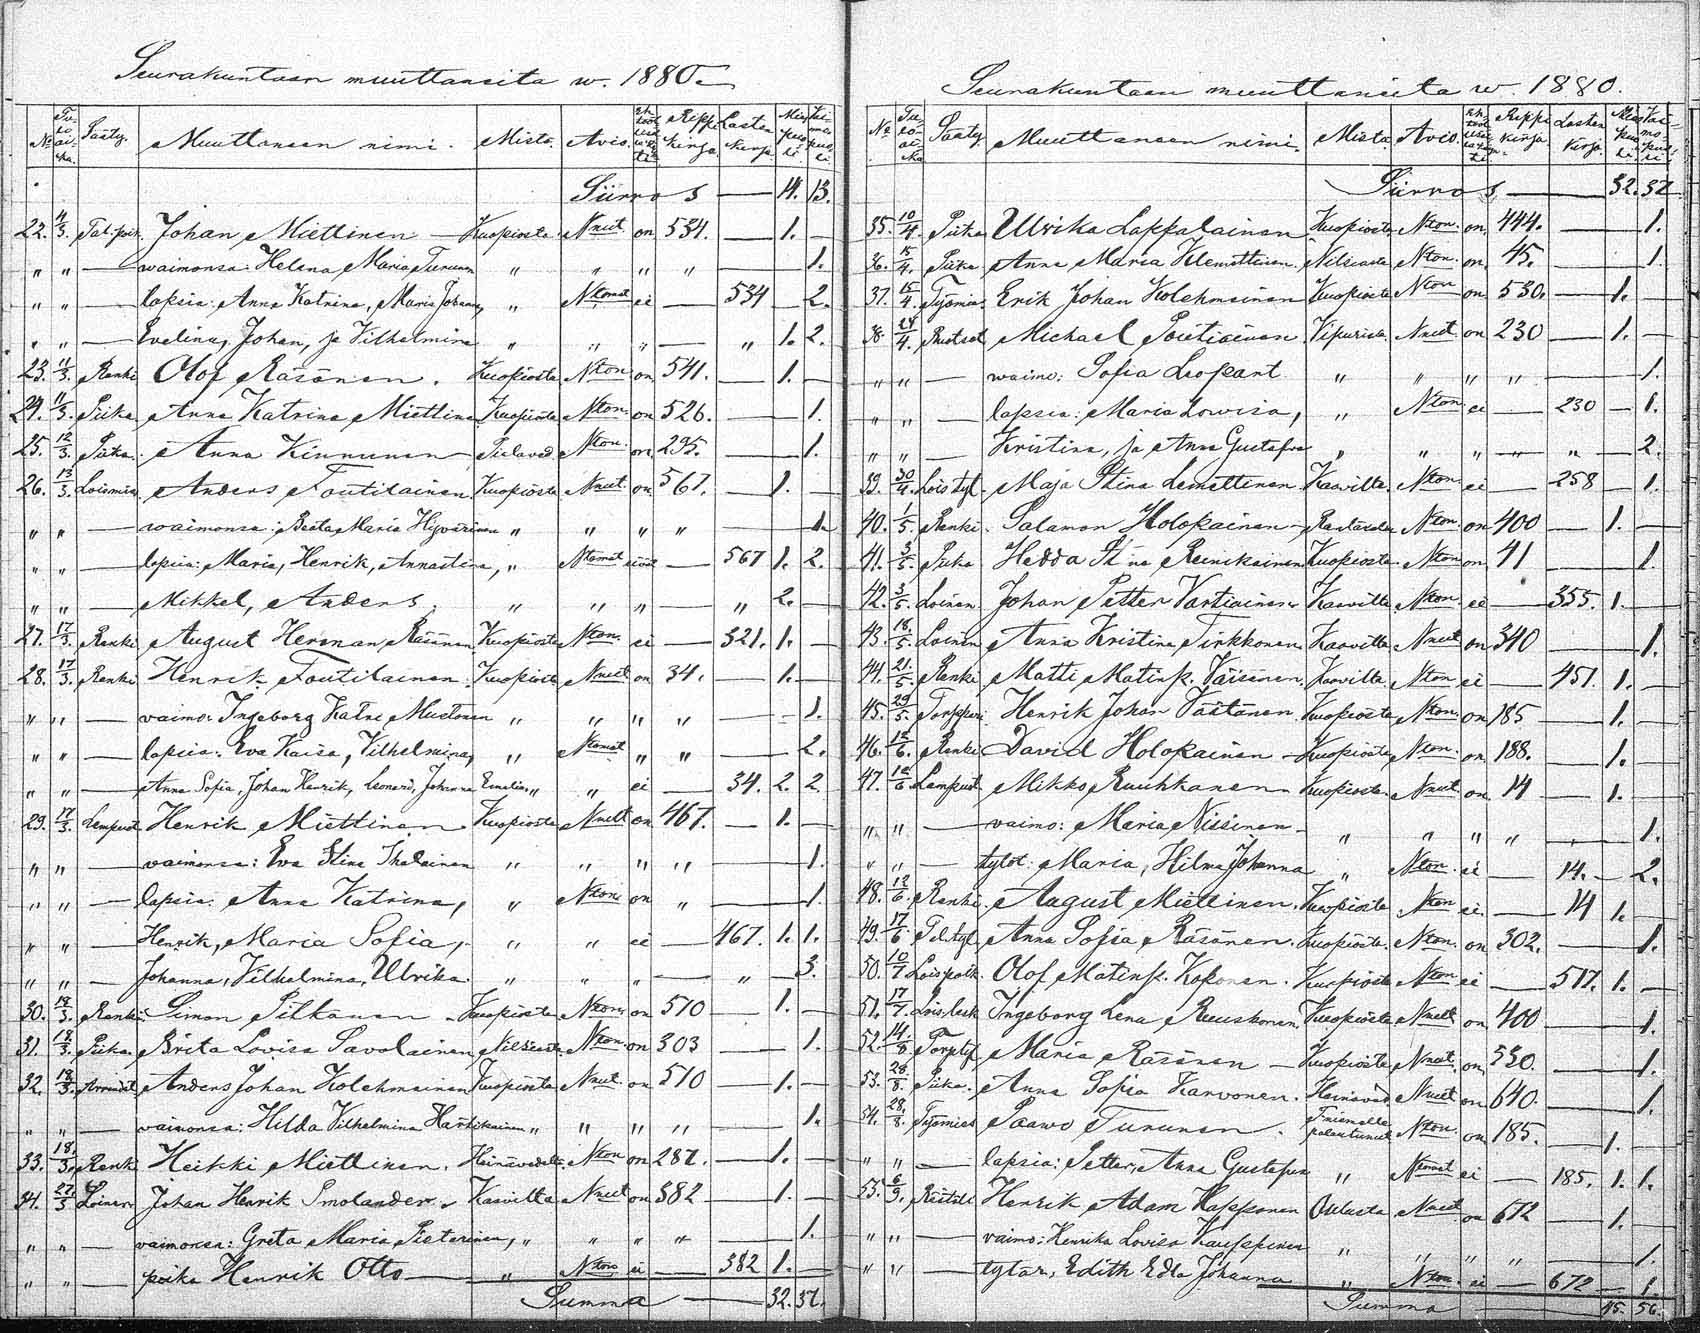 Seurakuntaan muuttaneita w. 1880.
No Tuloaika. Sääty. Muuttaneen nimi. Mistä. Avio. Rippikirja. Lastenkirja. Miespuoli. Vaimopuoli.
Siirros — 14. 13.
22. 4/3. Tal. poik. Johan Miettinen — Kuopiosta Nait on 534. — 1. —
„ „ — waimonsa: Helena Maria Turunen „ „ „ „ — 1.
„ „ — lapsia: Anna Katrina, Maria Johanna, „ Ntomat ei — 534 — 2.
„ „ — Evelina, Johan, ja Vilhelmina „ „ „ — „ 1. 2.
23. 11/3. Renki Olof Räsänen. Kuopiosta Nton on 541. — 1. —
24. 11/3. Piika Anna Katrina Miettinen Kuopiosta Nton. on 526. — 1.
25. 12/3. Piika. Anna Kinnunen Pielaved. Nton. on 295. — 1.
26. 13/3. Loismies Anders Toutilainen Kuopiosta Nait on 567. — 1. —
„ „ — waimonsa: Beata Maria Hyvärinen „ „ „ „ — 1.
„ „ — lapsia: Maria, Henrik, Annastina, „ Ntomat — 567 1. 2.
„ „ — Mikkel, Anders „ „ „ — „ 2. —
27. 17/3. Renki August Herman Räsänen Kuopiosta Nton. ei — 321. 1. —
28. 17/3. Renki Henrik Toutilainen Kuopiosta Nait on 34. — 1. —
„ „ — vaimo: Ingeborg Katri Mustonen „ „ „ „ — 1.
„ „ — lapsia: Eva Kaisa, Vilhelmina, „ Ntomat „ „ — 2.
„ „ — Anna Sofia, Johan Henrik, Leonard, Johanna Emelia „ „ ei — 34. 2. 2
29. 17/3. Lampuot Henrik Miettinen Kuopiosta Nait on 467. — 1. —
„ „ — vaimonsa: Eva Stina Ihalainen „ „ „ „ — 1.
„ „ — lapsia: Anna Katrina, „ Nton on „ — 1.
„ „ — Henrik, Maria Sofia, „ „ ei — 467. 1. 1.
„ „ — Johanna, Vilhelmina, Ulrika. „ „ „ — „ — 3.
30. 18/3. Renki Simon Pitkänen Kuopiosta Nton on 510 — 1. —
31. 18/3. Piika. Brita Lovisa Savolainen Nilsiästä Nton on 303 — 1.
32. 18/3. Arrendat Anders Johan Kolehmainen Kuopiosta Nait. on 510 — 1. —
„ „ — vaimonsa: Hilda Vilhelmina Hartikainen „ „ „ „ — 1.
33. 18/3. Renki Heikki Miettinen. Heinävedeltä Nton on 287. — 1. —
34. 27/3 Loinen Johan Henrik Smolander. Kaavilta Nait on 382 — 1. —
„ „ — vaimonsa: Greta Maria Pietarinen, „ „ „ „ — 1.
„ „ — poika Henrik Otto — „ Nton ei — 382 1. —
Summa — 32. 37.
Seurakuntaan muuttaneita w. 1880.
No Tuloaika Sääty Muuttaneen nimi. Mistä Avio. Rippikirja Lastenkirja. Miespuoli. Vaimopuoli.
Siirros — 32. 37
35. 10/4. Piika Ulrika Lappalainen Kuopiosta Nton. on 444. — 1.
36. 15/4. Piika Anna Maria Klemettinen Nilsiästä Nton. on 45. — 1.
37. 15/4. Työmies. Erik Johan Kolehmainen Kuopiosta Nton on 530. — 1. —
38. 24/4. Michael Poutiainen Vipurista Nait on 230 — 1. —
„ „ — waimo: Sofia Leopart „ „ „ „ — 1.
„ „ — lapsia: Maria Lowisa, „ Nton ei — 230 — 1.
„ „ — Kristina, ja Anna Gustafva „ „ „ — „ — 2.
39. 30/4. Lois tyt. Maja Stina Lemettinen Kaavilta. Nton. ei — 258 — 1.
40. 1/5. Renki. Salamon Holopainen Nton. on 400 — 1. —
41. 3/5. Piika Hedda Stina Reinikainen Kuopiosta Nton on 41 — 1.
42. 3/5. Loinen. Johan Petter Vartiainen Kaavilta Nton. ei — 355. 1. —
43. 18/5. Loinen Anna Kristina Tirkkonen Kaavilta Nait on 340 — 1.
44. 21/5. Renki Matti Matinp. Väisänen. Kaavilta Nton ei — 451. 1. —
45. 29/5. Torppari Henrik Johan Västänen Kuopiosta Nton. on 185 — 1. —
46. 12/6. Renki David Holopainen — Kuopiosta Nton. on 188. — 1. —
47. 12/6 Lampuot. Mikko Ruuhkanen Kuopiosta. Nait. on 14 — 1. —
„ „ — vaimo: Maria Nissinen „ „ „ „ „ 1.
„ „ — tytöt: Maria, Hilma Johanna „ Nton. ei — 14. — 2.
48. 12/6. Renki. August Miettinen. Kuopiosta Nton ei. — 14 1. —
49. 17/6. Anna Sofia Räsänen. Kuopiosta. Nton. on 302. — 1.
50. 10/7 Lois poik. Olof Matinp. Kokonen. Kuopiosta Nton ei — 517. 1. —
51. 17/7. Lois lesk Ingeborg Lena Ruuskonen Kuopiosta Nait on 400 — 1.
52. 14/8 Torp tyt Maria Räsänen — Kuopiosta Nait. on 530. — 1.
53. 28/8. Piika. Anna Sofia Karvonen. Heinäved. Nait on 640. — 1.
54. 28/8. Työmies Paawo Turunen. palautunut Nton. on 185. — 1. —
„ „ — lapsia: Petter, Anna Gustafva „ Ntomat ei — 185. 1. 1.
55. 6/9. Henrik Adam Happonen Oulusta Nait on 672 — 1. —
„ „ — vaimo: Henrika Lovisa Kauppinen „ „ „ „ — 1.
„ „ — tytär, Edith Edla Johanna „ Nton. ei — 672 — 1.
Summa — 45. 56.